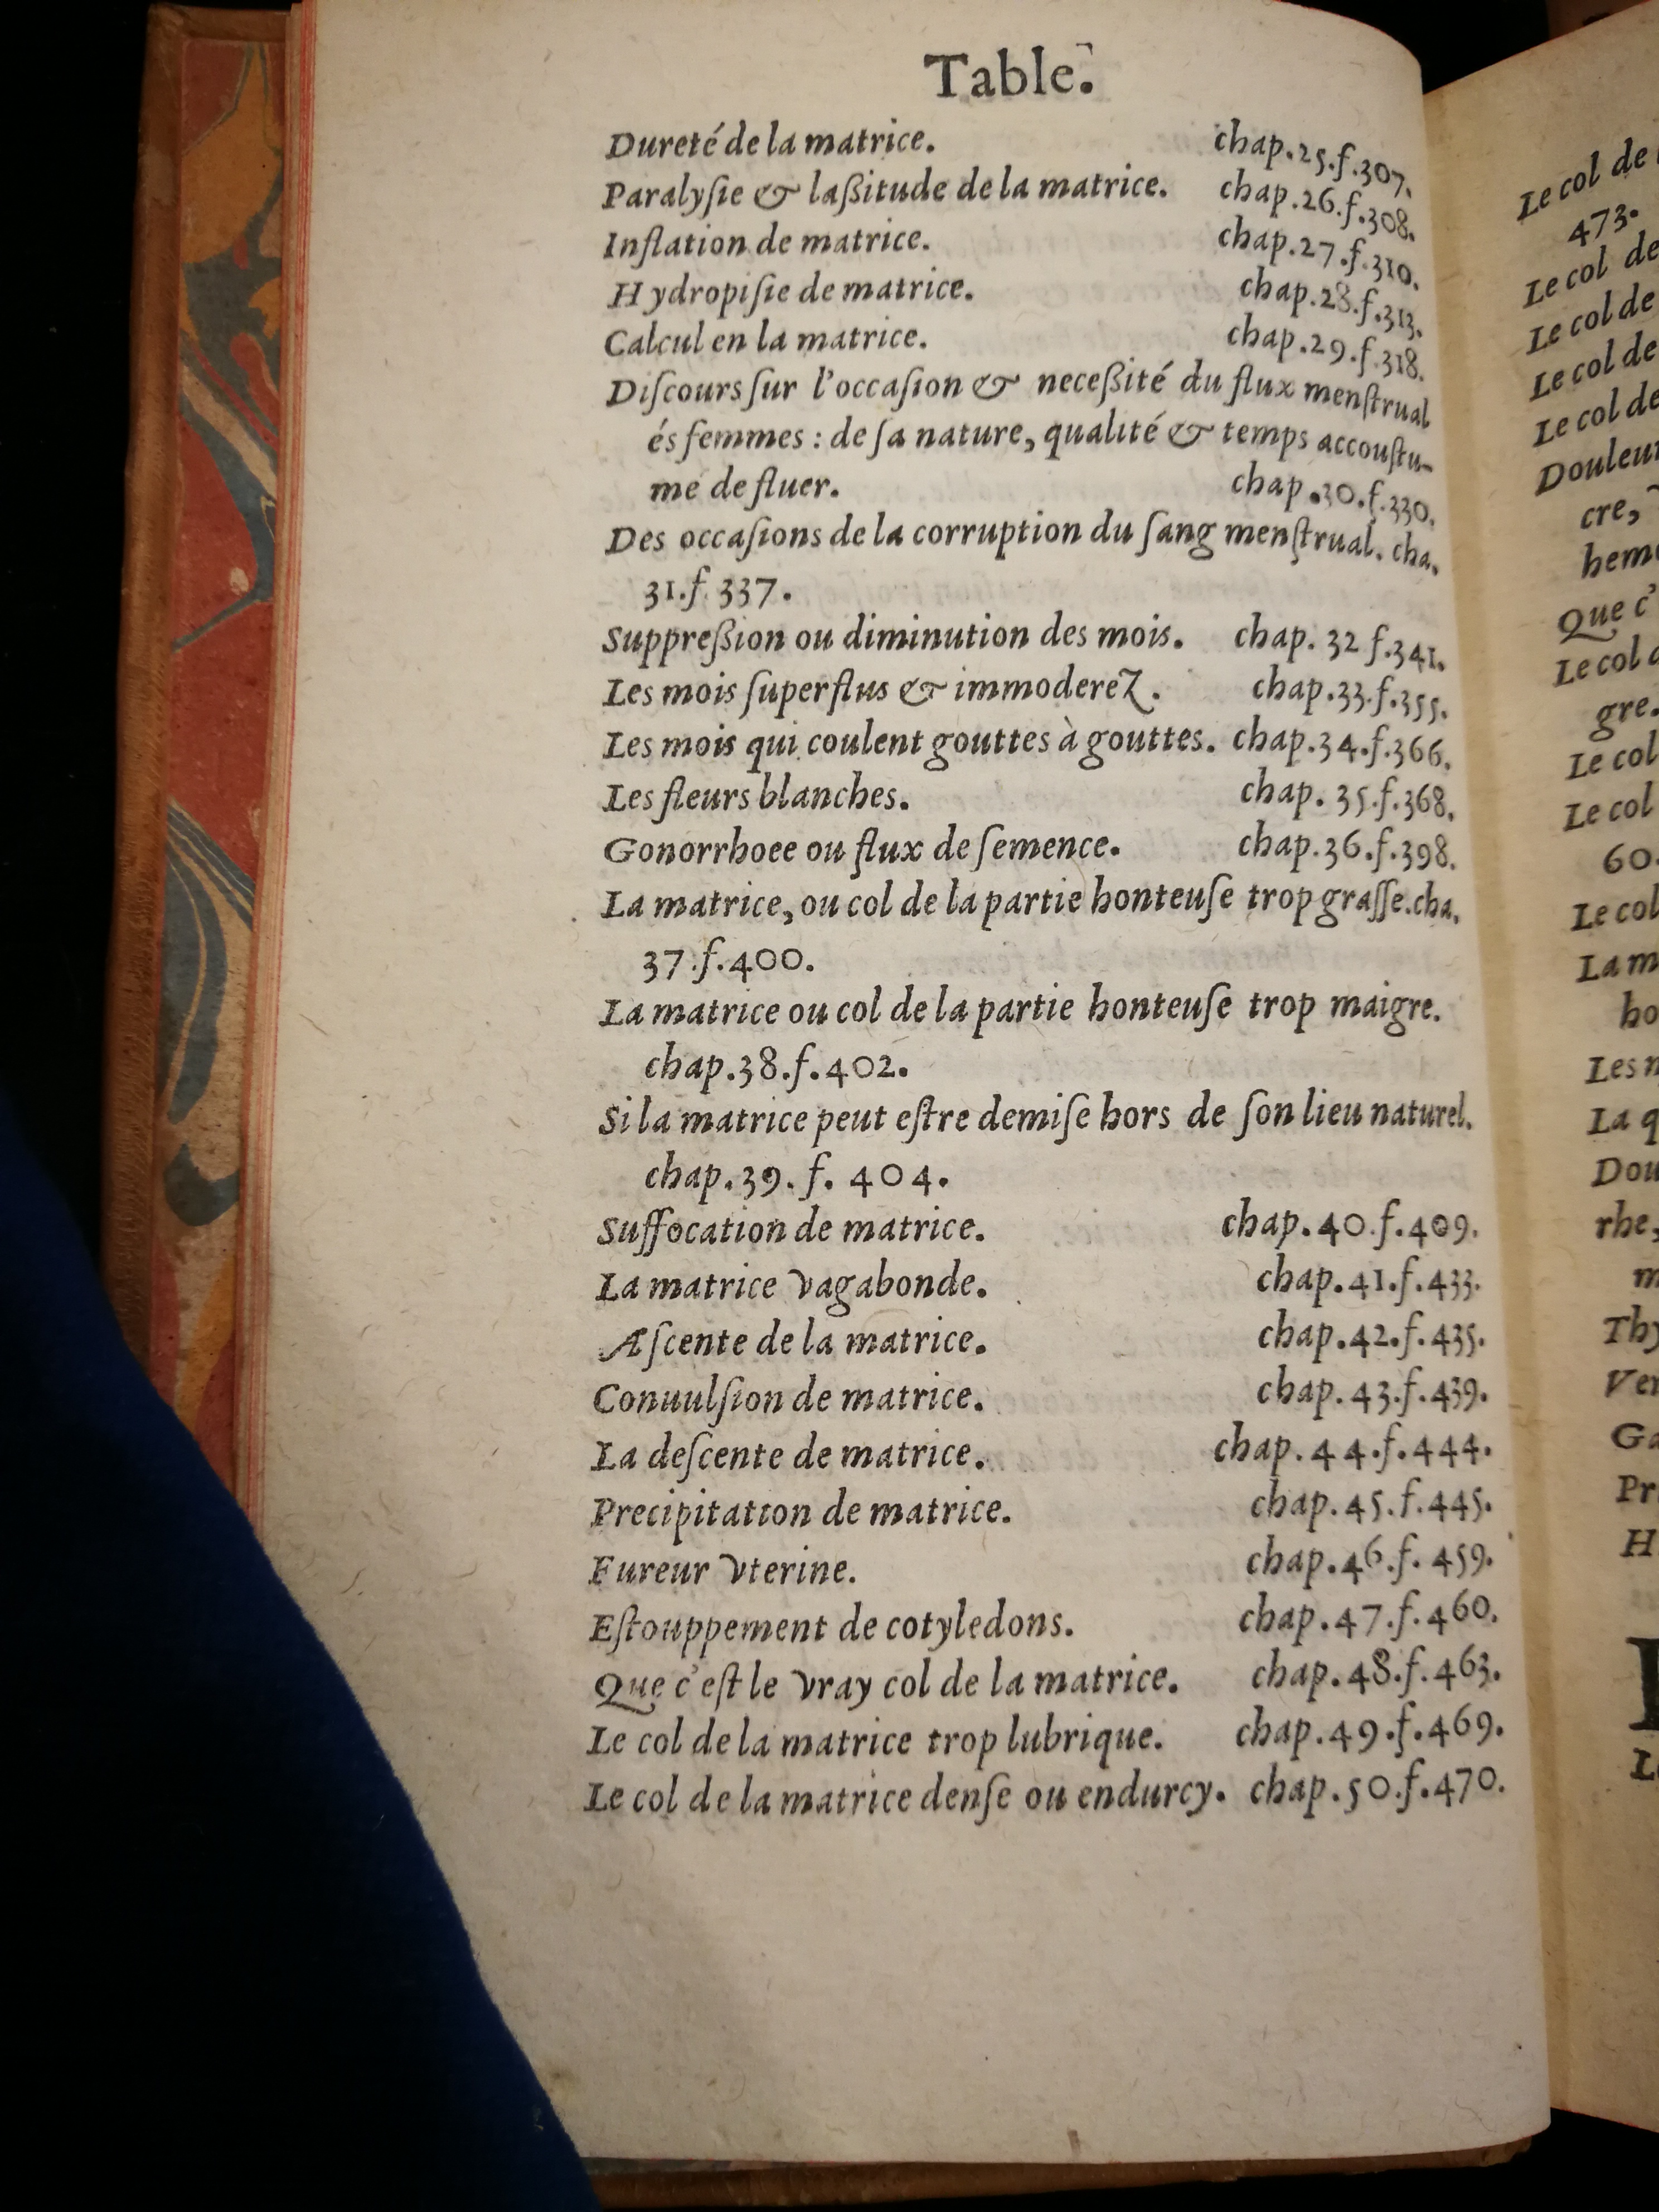 Table.
Dureté de la matrice. chap.25.f.307.
Paralyſie & laßitude de la matrice. chap.26.f.308.
Inflation de matrice. chap.27.f.310.
Hydropiſie de matrice. chap.28.f.313.
Calcul en la matrice. chap.29.f.318.
Diſcours ſur l'occaſion & neceßité du flux menſtrual
és femmes : de ſa nature, qualité & temps accouſtu-
mé de fluer. chap.30.f.330.
Des occaſions de la corruption du ſang menſtrual. cha.
31.f.337.
Suppreßion ou diminution des mois. chap. 32 f.341.
Les mois ſuperflus & immoderez. chap.33.f.355.
Les mois qui coulent gouttes à gouttes. chap.34.f.366.
Les fleurs blanches. chap. 35.f.368.
Gonorrhoee ou flux de ſemence. chap.36.f.398.
La matrice, ou col de la partie honteuſe trop graſſe.cha.
37.f.400.
La matrice ou col de la partie honteuſe trop maigre.
chap.38.f.402.
Si la matrice peut eſtre demiſe hors de ſon lieu naturel.
chap.39. f. 404.
Suffocation de matrice. chap.40.f.409.
La matrice vagabonde. chap.41.f.433.
Aſcente de la matrice. chap.42.f.435.
Conuulſion de matrice. chap.43.f.439.
La deſcente de matrice. chap.44.f.444.
Precipitation de matrice. chap.45.f.445.
Fureur vterine. chap.46.f. 459.
Eſtouppement de cotyledons. chap.47.f.460.
Que c'eſt le vray col de la matrice. chap.48.f.463.
Le col de la matrice trop lubrique. chap.49.f.469.
Le col de la matrice denſe ou endurcy. chap.50.f.470.
Le col de
473.
Le col de
Le col de
Le col de
Le col de
Douleur
cre,
Que c'
Le col
gre.
Le col
Le col
60.
Le col
Les
La
rhe,